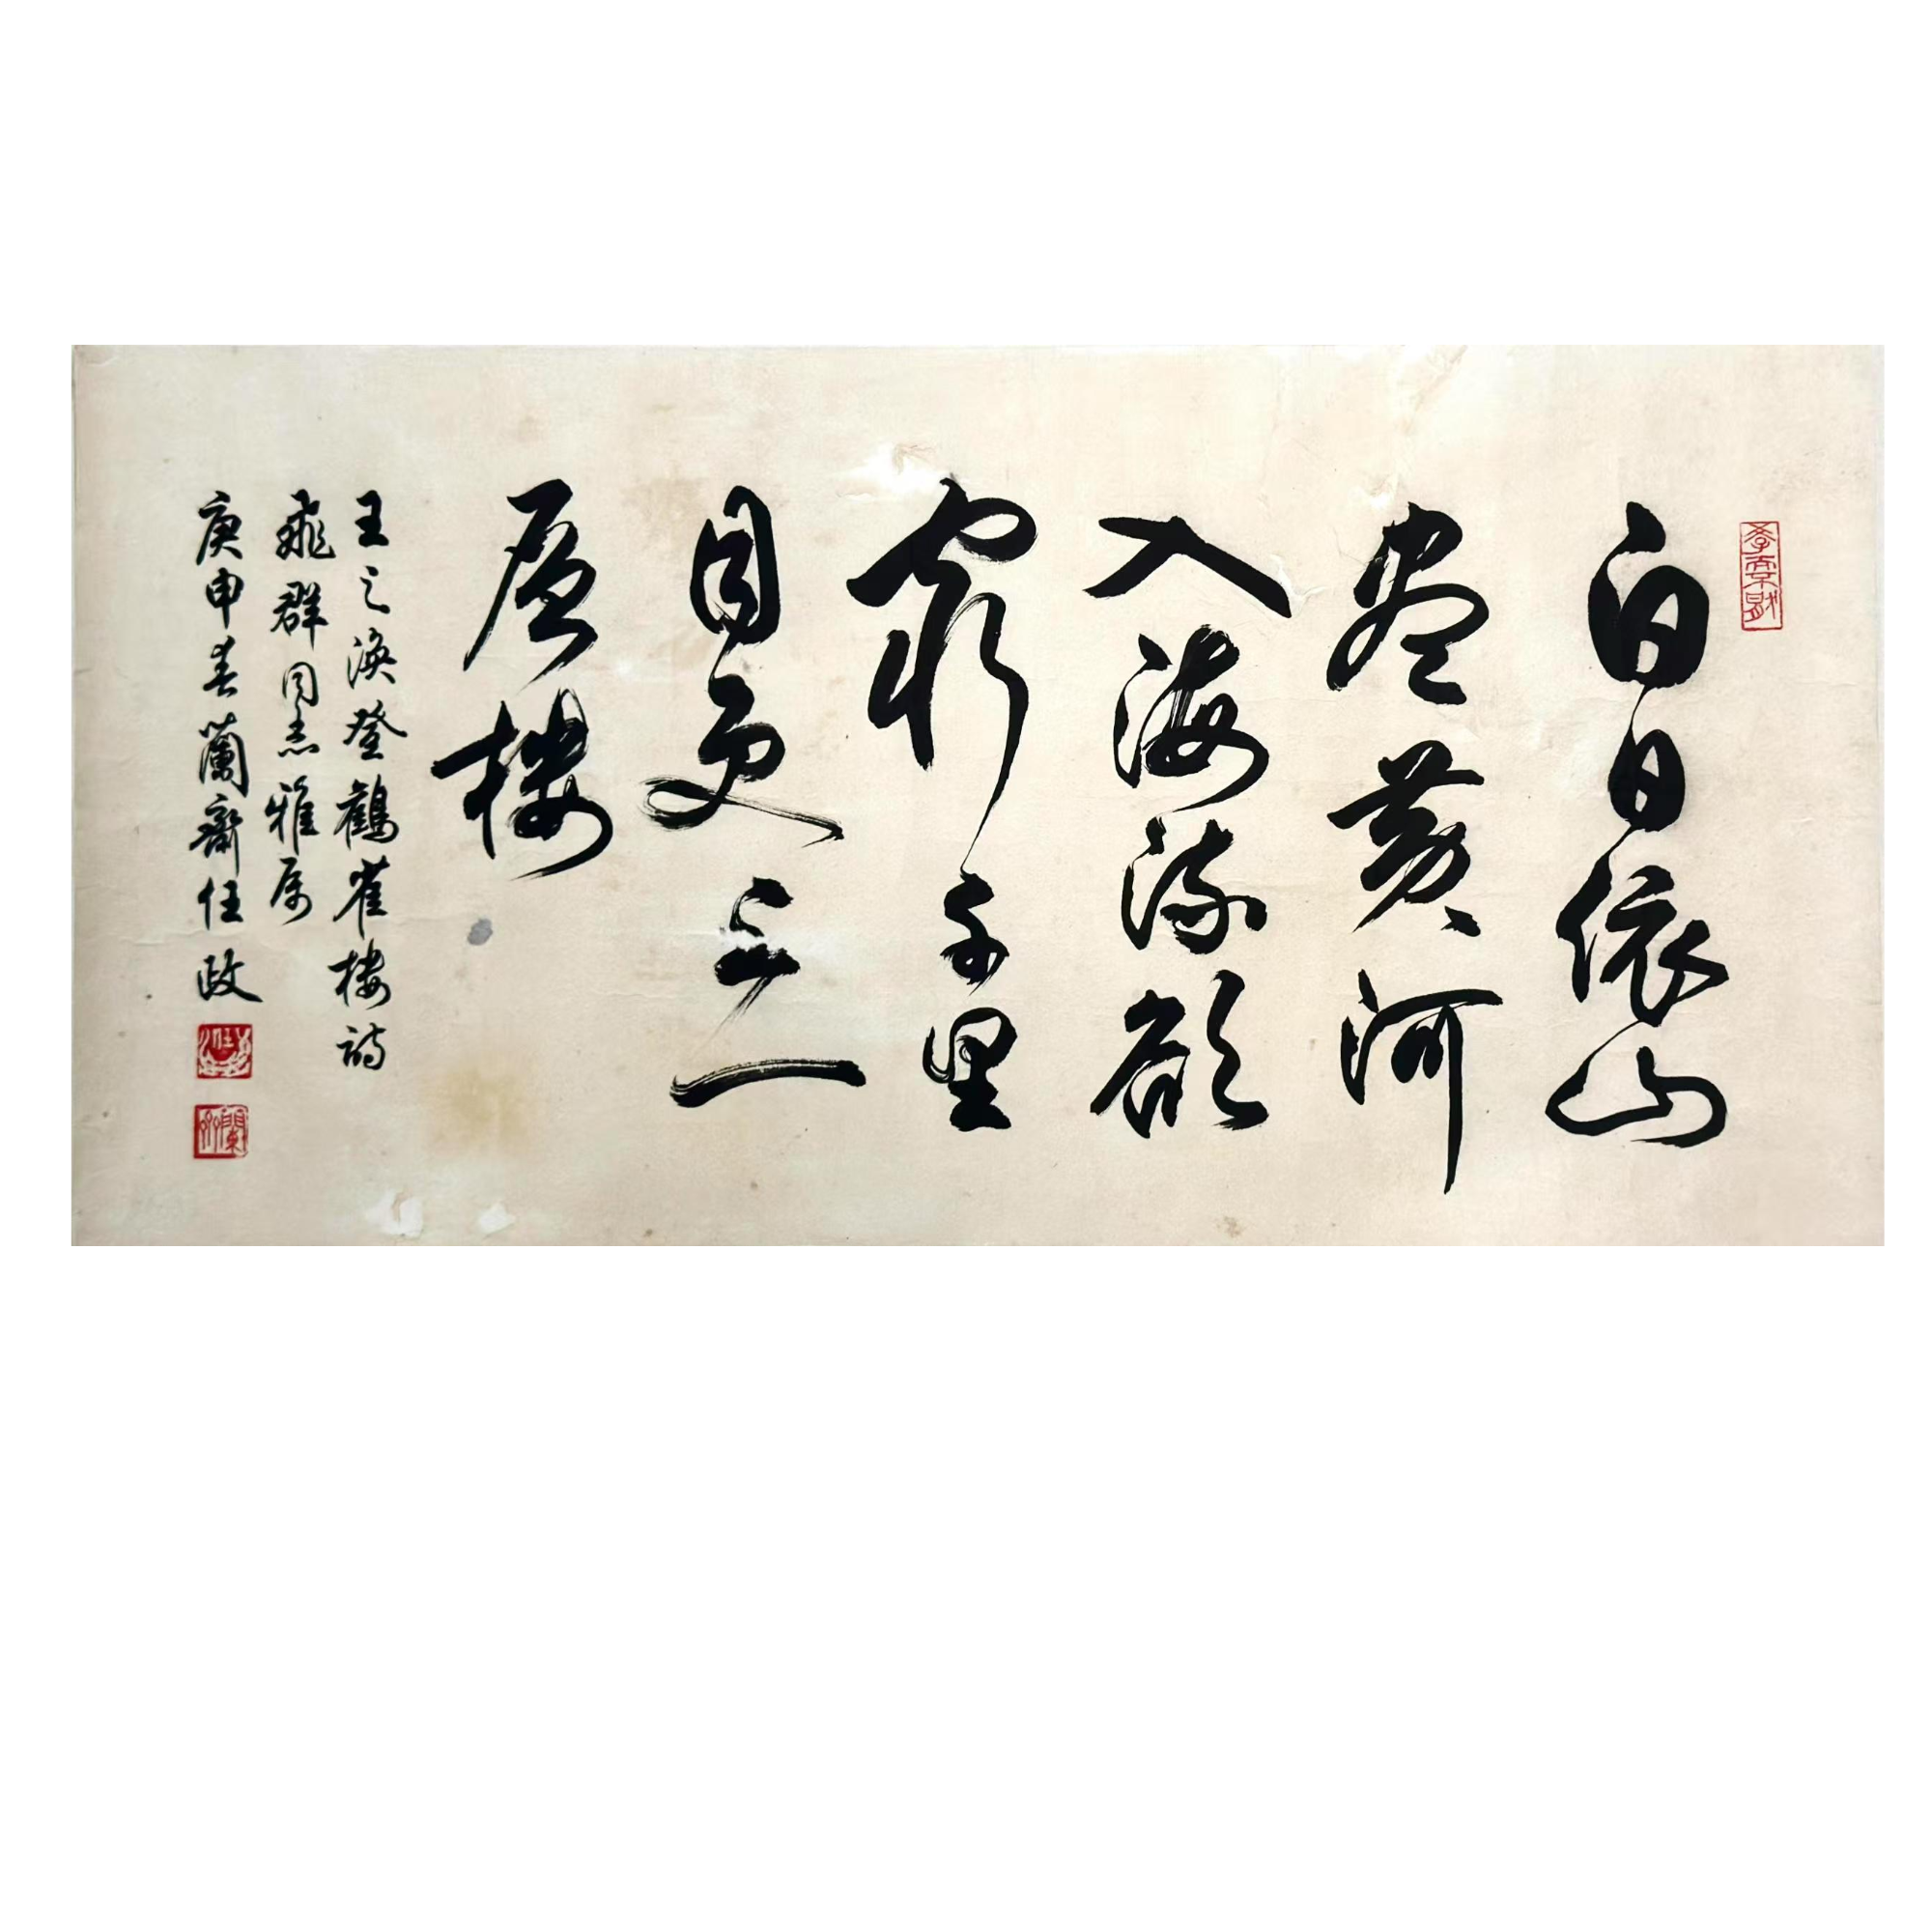 白日依山
盡黄河
入海流欲
窮千里
目更上一
層樓
王之渙登鸛雀樓詩
飛群同志雅属
庚申春蘭齋任政